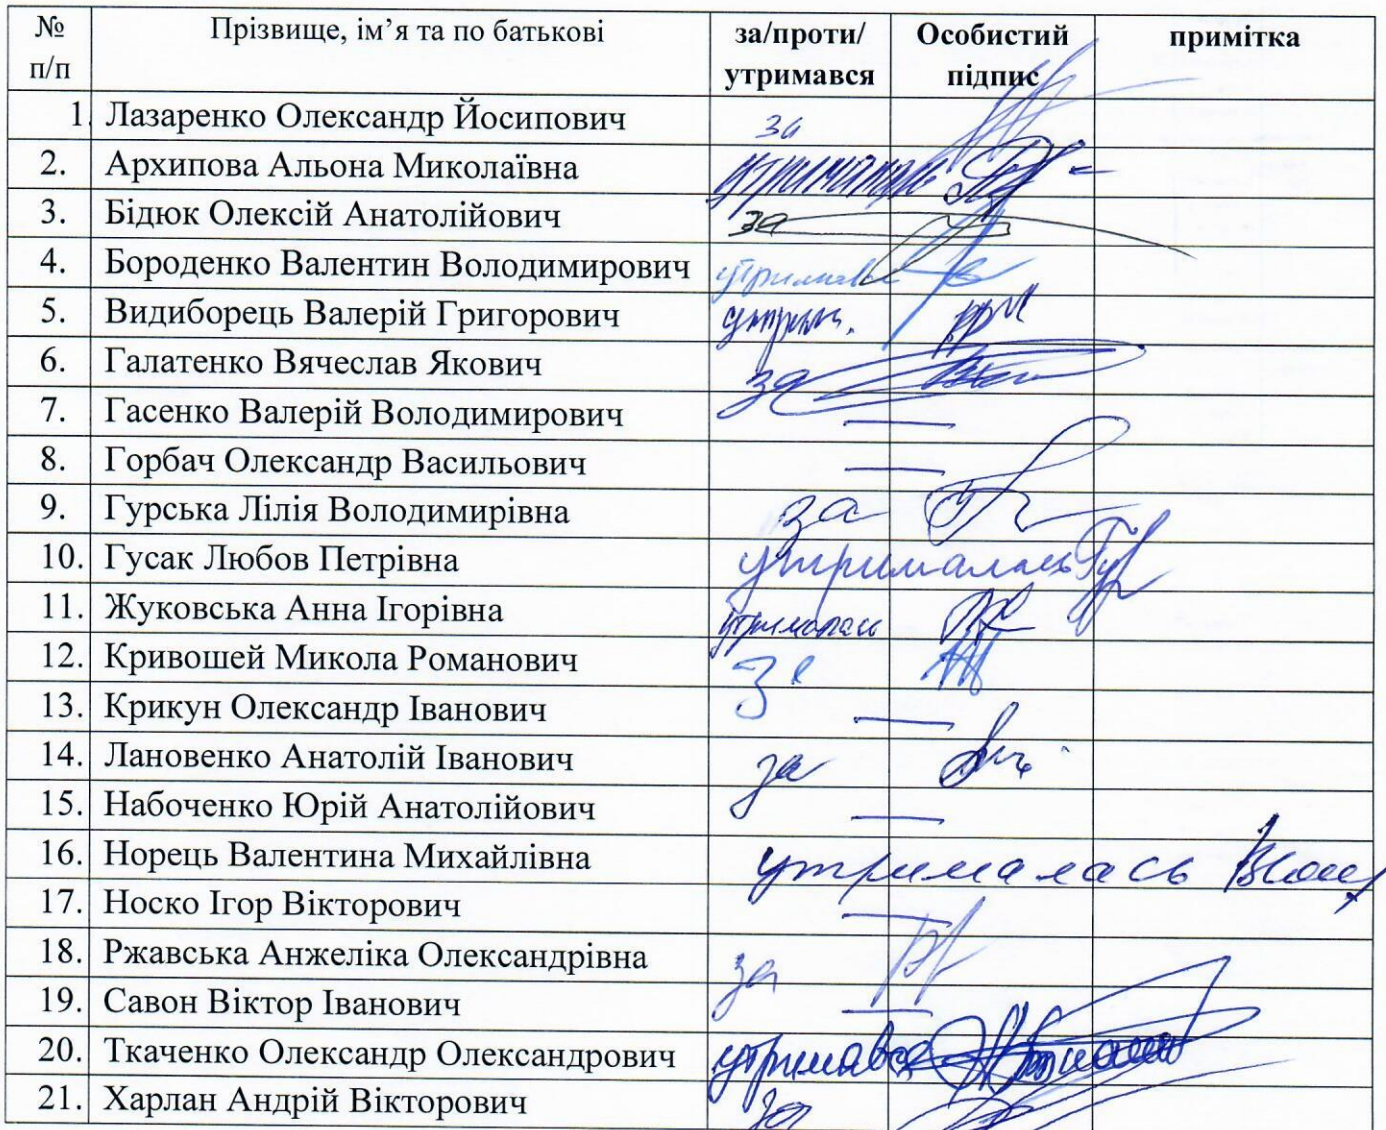 № Прізвище, ім’я та по батькові за/проти/ Особистий примітка
п/п утримався підпис
1. Лазаренко Олександр Йосипович за
2. Архипова Альона Миколаївна
3. Бідюк Олексій Анатолійович за
4. Бороденко Валентин Володимирович
5. Видиборець Валерій Григорович утрим.
6. Галатенко Вячеслав Якович за
7. Гасенко Валерій Володимирович —
8. Горбач Олександр Васильович —
9. Гурська Лілія Володимирівна за
10. Гусак Любов Петрівна утрималась
11. Жуковська Анна Ігорівна утрималась
12. Кривошей Микола Романович за
13. Крикун Олександр Іванович —
14. Лановенко Анатолій Іванович за
15. Набоченко Юрій Анатолійович —
16. Норець Валентина Михайлівна утрималась
17. Носко Ігор Вікторович —
18. Ржавська Анжеліка Олександрівна за
19. Савон Віктор Іванович —
20. Ткаченко Олександр Олександрович утримався
21. Харлан Андрій Вікторович за